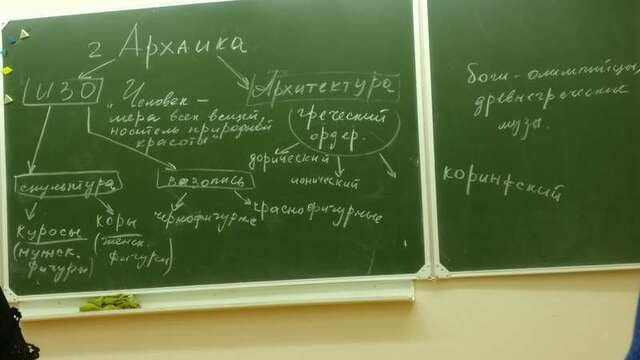 2 Архаика
ИЗО
"Человек –
мера всех вещей,
носитель природной
красоты"
Архитектура
греческий
ордер.
дорический
ионический
скульптура
вазопись
куросы
(мужск.
фигуры)
коры
(женск.
фигуры)
чернофигурные
краснофигурные
боги-олимпийцы,
древнегреческие
музы.
коринфский